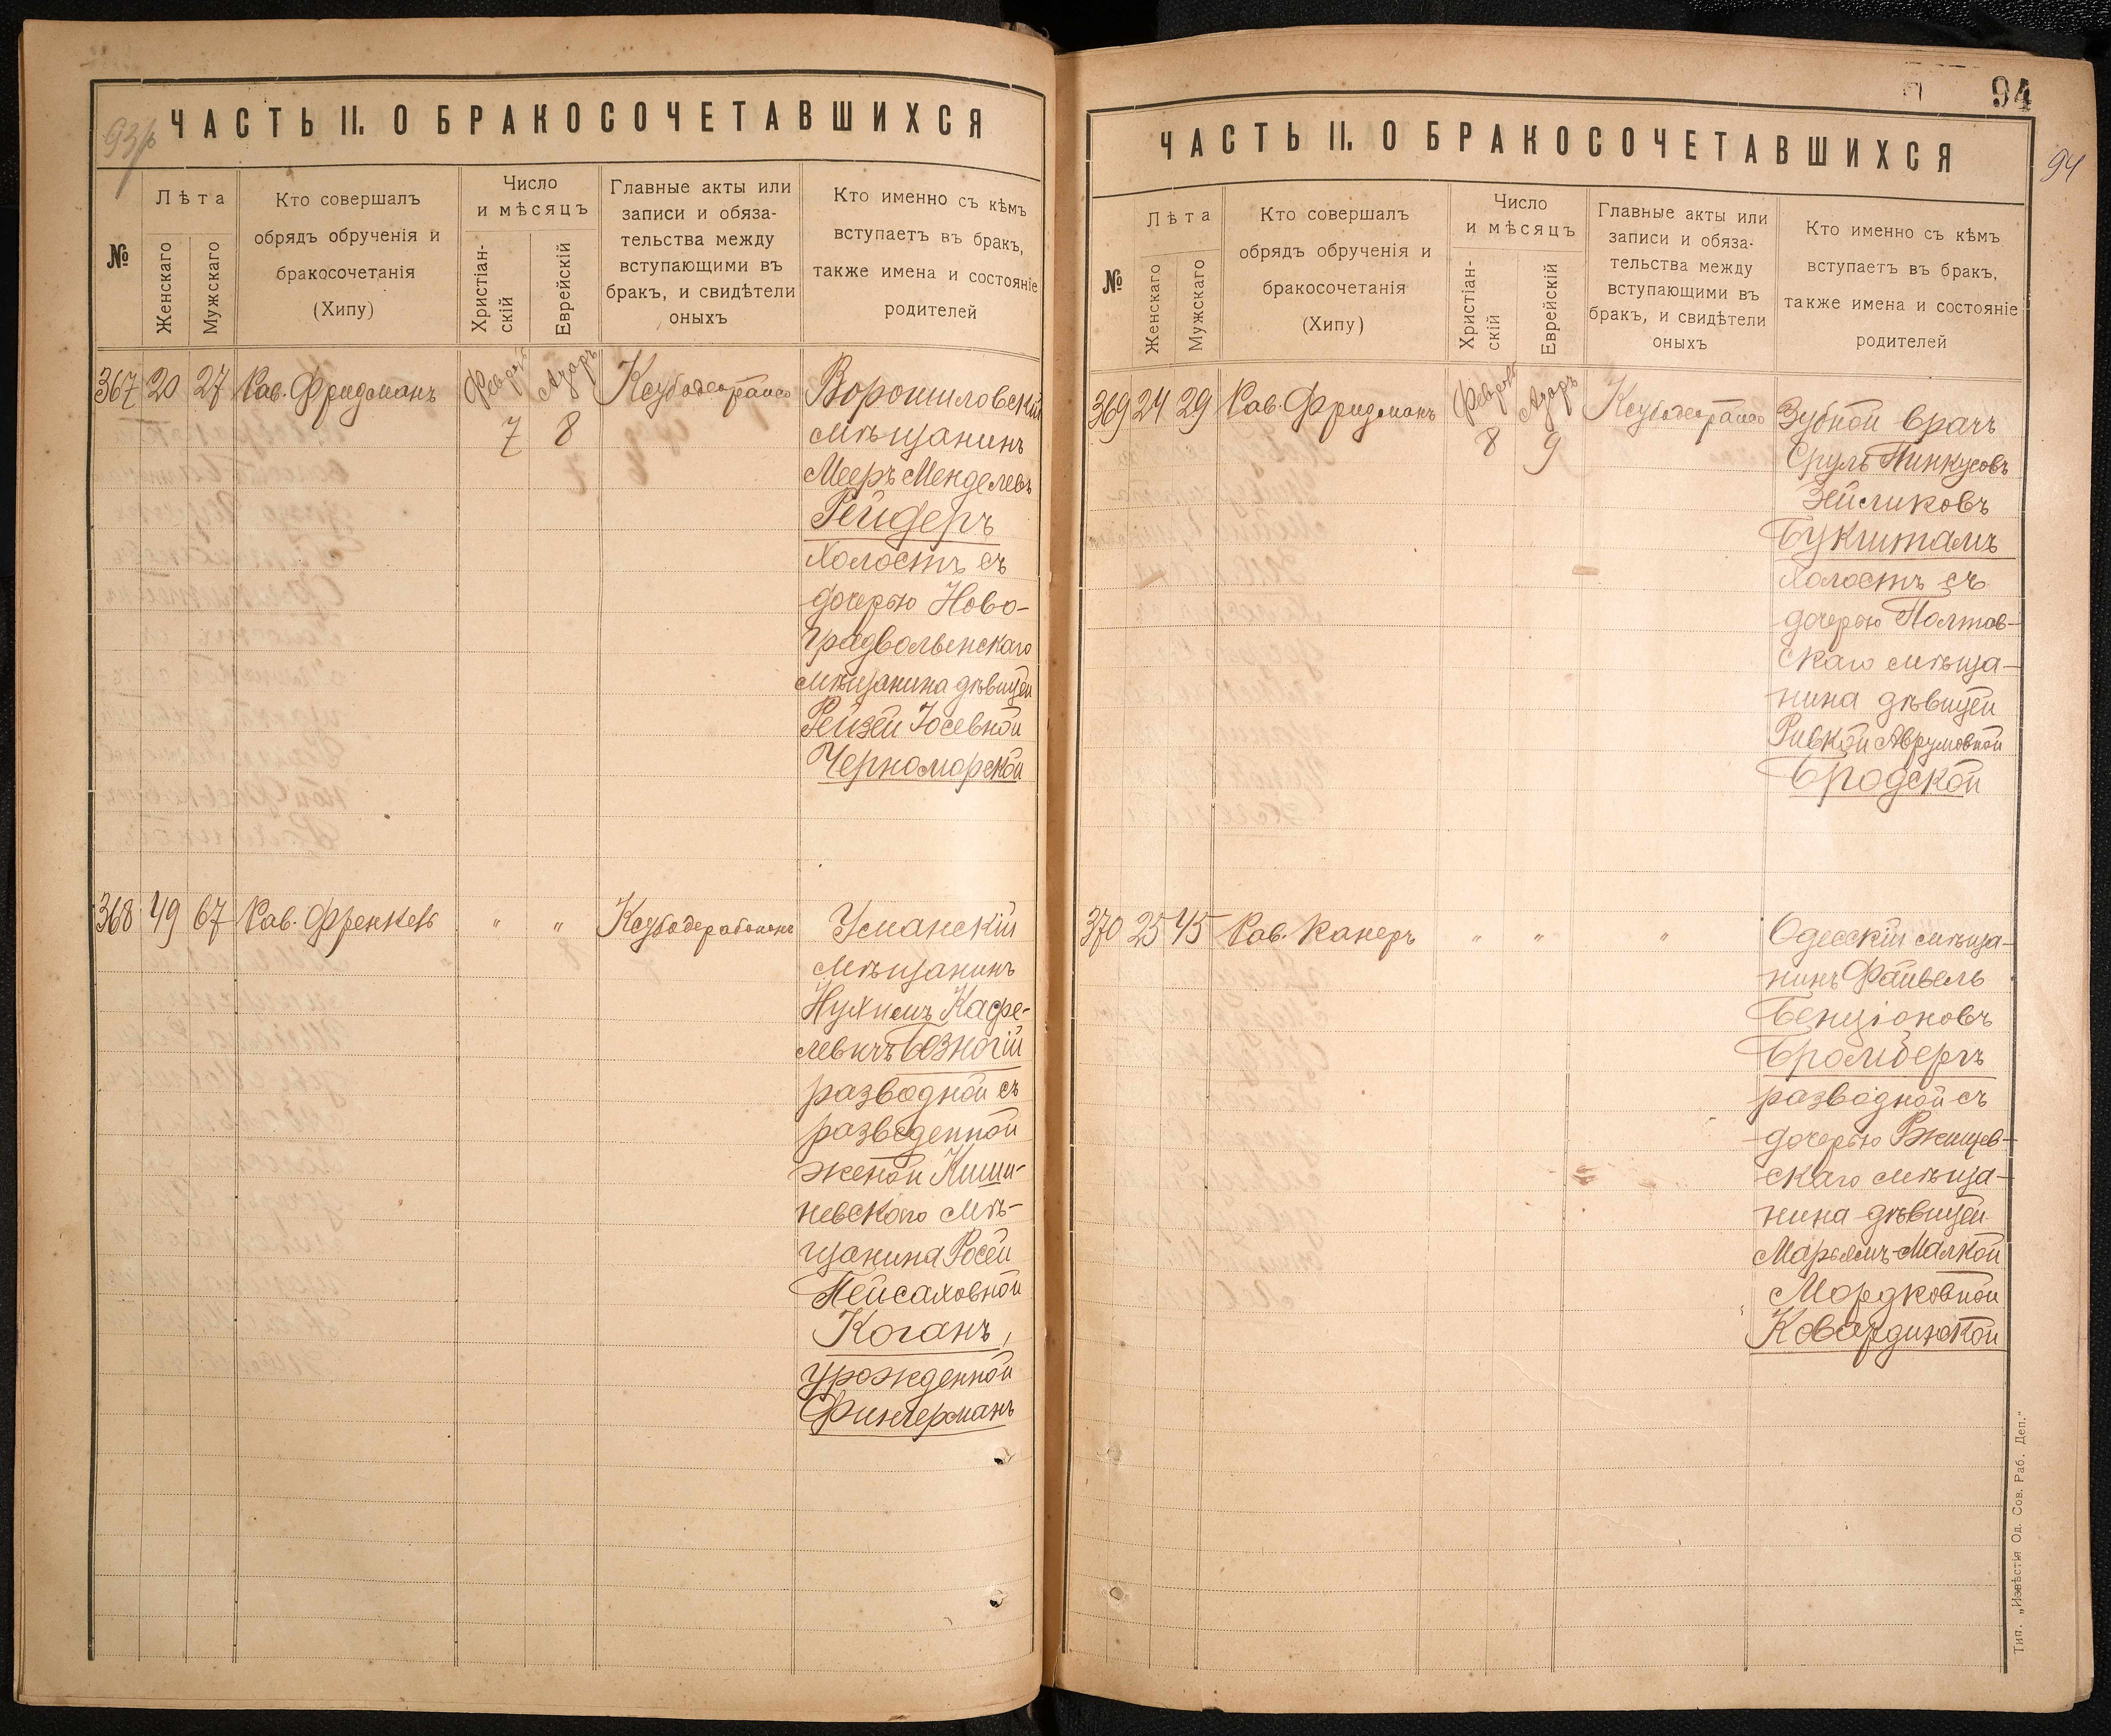 93/р
ЧАСТЬ II. О БРАКОСОЧЕТАВШИХСЯ
№
Лѣта
Женскаго
Мужскаго
Кто совершалъ
обрядъ обрученія и
бракосочетанія
(Хипу)
Число
и мѣсяцъ
Христіан-
скій
Еврейскій
Главные акты или
записи и обяза-
тельства между
вступающими въ
бракъ, и свидѣтели
оныхъ
Кто именно съ кѣмъ
вступаетъ въ бракъ,
также имена и состояніе
родителей
367 20 27 Рав. Фридманъ
7 8
Ворошиловскій
мѣщанинъ
Мееръ Менделевъ
Рейдеръ
холостъ съ
дочерью Ново-
градволынскаго
мѣщанина дѣвицей
Рейзей Іосевной
Черноморской
368 49 67 Рав. Френкель " "
Уманскій
мѣщанинъ
Нухимъ Кафе-
левичъ Бозногій
разводной съ
разведенной
женой Киши-
невского мѣ-
щанина Росей
Пейсаховной
Коганъ,
урожденной
Фингерманъ
94
94
ЧАСТЬ II. О БРАКОСОЧЕТАВШИХСЯ
№
Лѣта
Женскаго
Мужскаго
Кто совершалъ
обрядъ обрученія и
бракосочетанія
(Хипу)
Число
и мѣсяцъ
Христіан-
скій
Еврейскій
Главные акты или
записи и обяза-
тельства между
вступающими въ
бракъ, и свидѣтели
оныхъ
Кто именно съ кѣмъ
вступаетъ въ бракъ,
также имена и состояніе
родителей
369 24 29 Рав. Фридманъ
8 9
Зубной врачъ
Сруль Пинкусовъ
Зейликовъ
Букшталъ
холостъ съ
дочерью Полтав-
скаго мѣща-
нина дѣвицей
Ривкой Аврумовной
Бродской
370 25 45 Рав. Канеръ " " "
Одесскій мѣща-
нинъ Файвель
Бенціоновъ
Бромбергъ
разводной съ
дочерью Ржищев-
скаго мѣща-
нина дѣвицей
Марьямъ-Малкой
Мордковной
Ковардинской
Тип. „Извѣстія Од. Сов. Раб. Деп."